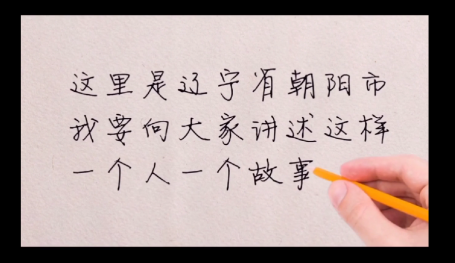 这里是辽宁省朝阳市
我要向大家讲述这样
一个人一个故事